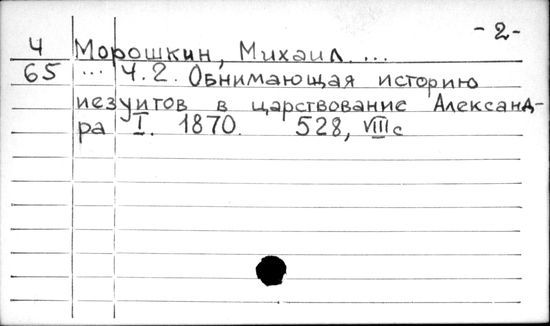 - 2-
Ч Морошкин, Михаил ...
65 ... Ч.2. Обнимающая историю
иезуитов в царствование Александ-
ра I. 1870. 528, VIII с